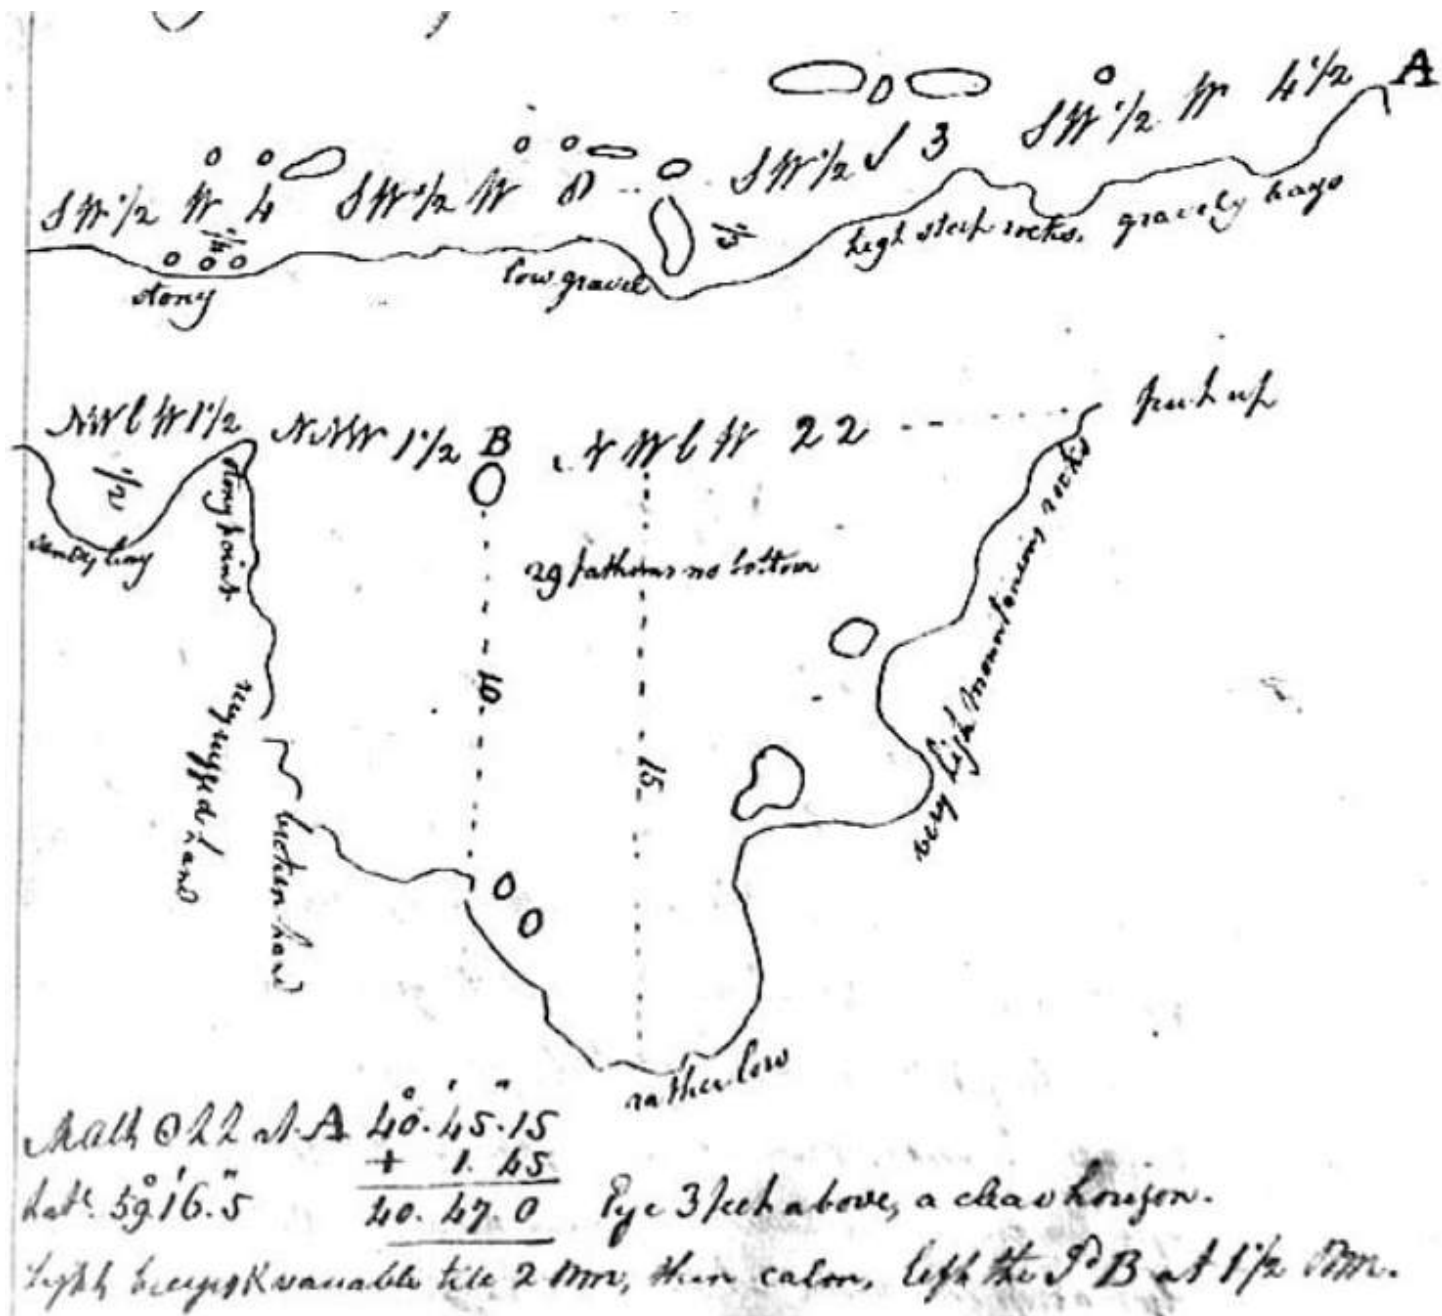 A
SW 1/2 W 4 SW 1/2 W 8 SW 1/2 S 3 SW 1/2 W 4 1/2
1/4
1/3
stony low gravel high steep rocks. gravely bays
NWbW 1 1/2 NNW 1 1/2 B NWbW 22
1/2
sandy bay
stony point
29 fathoms no bottom
10
15
very high mountainous rocks
very rugged land
broken land
rather low
Mer Alt ʘ LL at A 40°.45'.15"
+ 1.45
Lat. 59°.16'.5" 40.47.0 Eye 3 feet above, a clear horizon.
Light variable till 2 PM, then calm, left the Pt B at 1 1/2 PM.